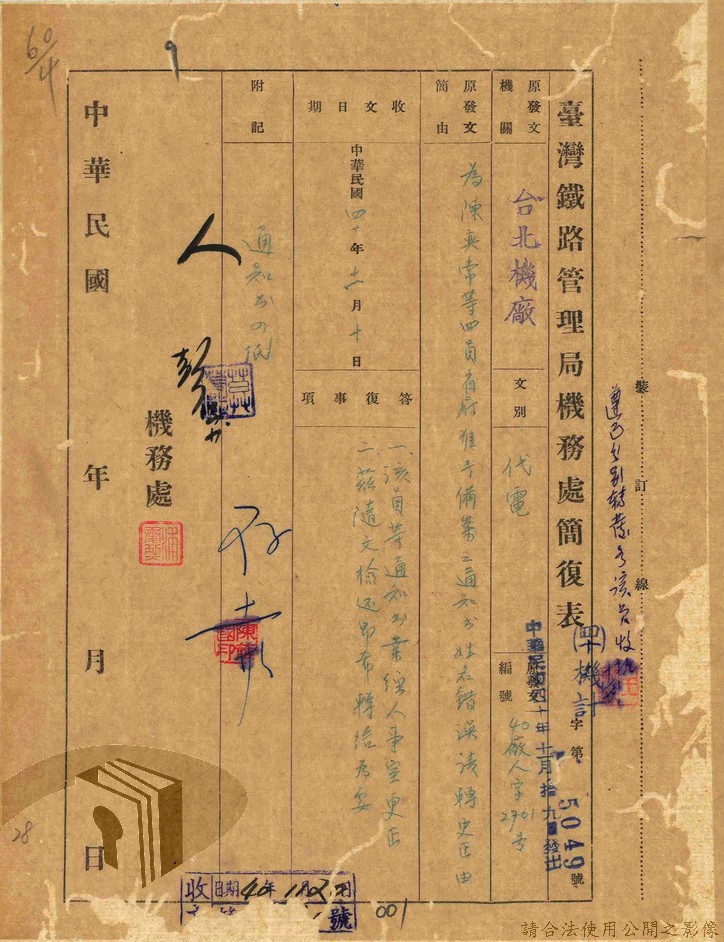 臺灣鐵路管理局機務處簡復表
(四十)機計字第5049號
中華民國四十年十一月拾九日發出
裝訂線
原發文機關
台北機廠
文別
代電
原發文編號
40廠人字2701號
原發文簡由
為陳奕常等四員省府准予備案之通知書姓名錯誤請轉更正由
收文日期
中華民國四十年十一月十日
答復事項
一、該員等通知書業經人事室更正
二、茲隨文檢送即希轉給為妥
附記
通知書四紙
人
存
機務處
中華民國年月日
收
日期
40年
號
001
60/4
9
28
請合法使用公開之影像